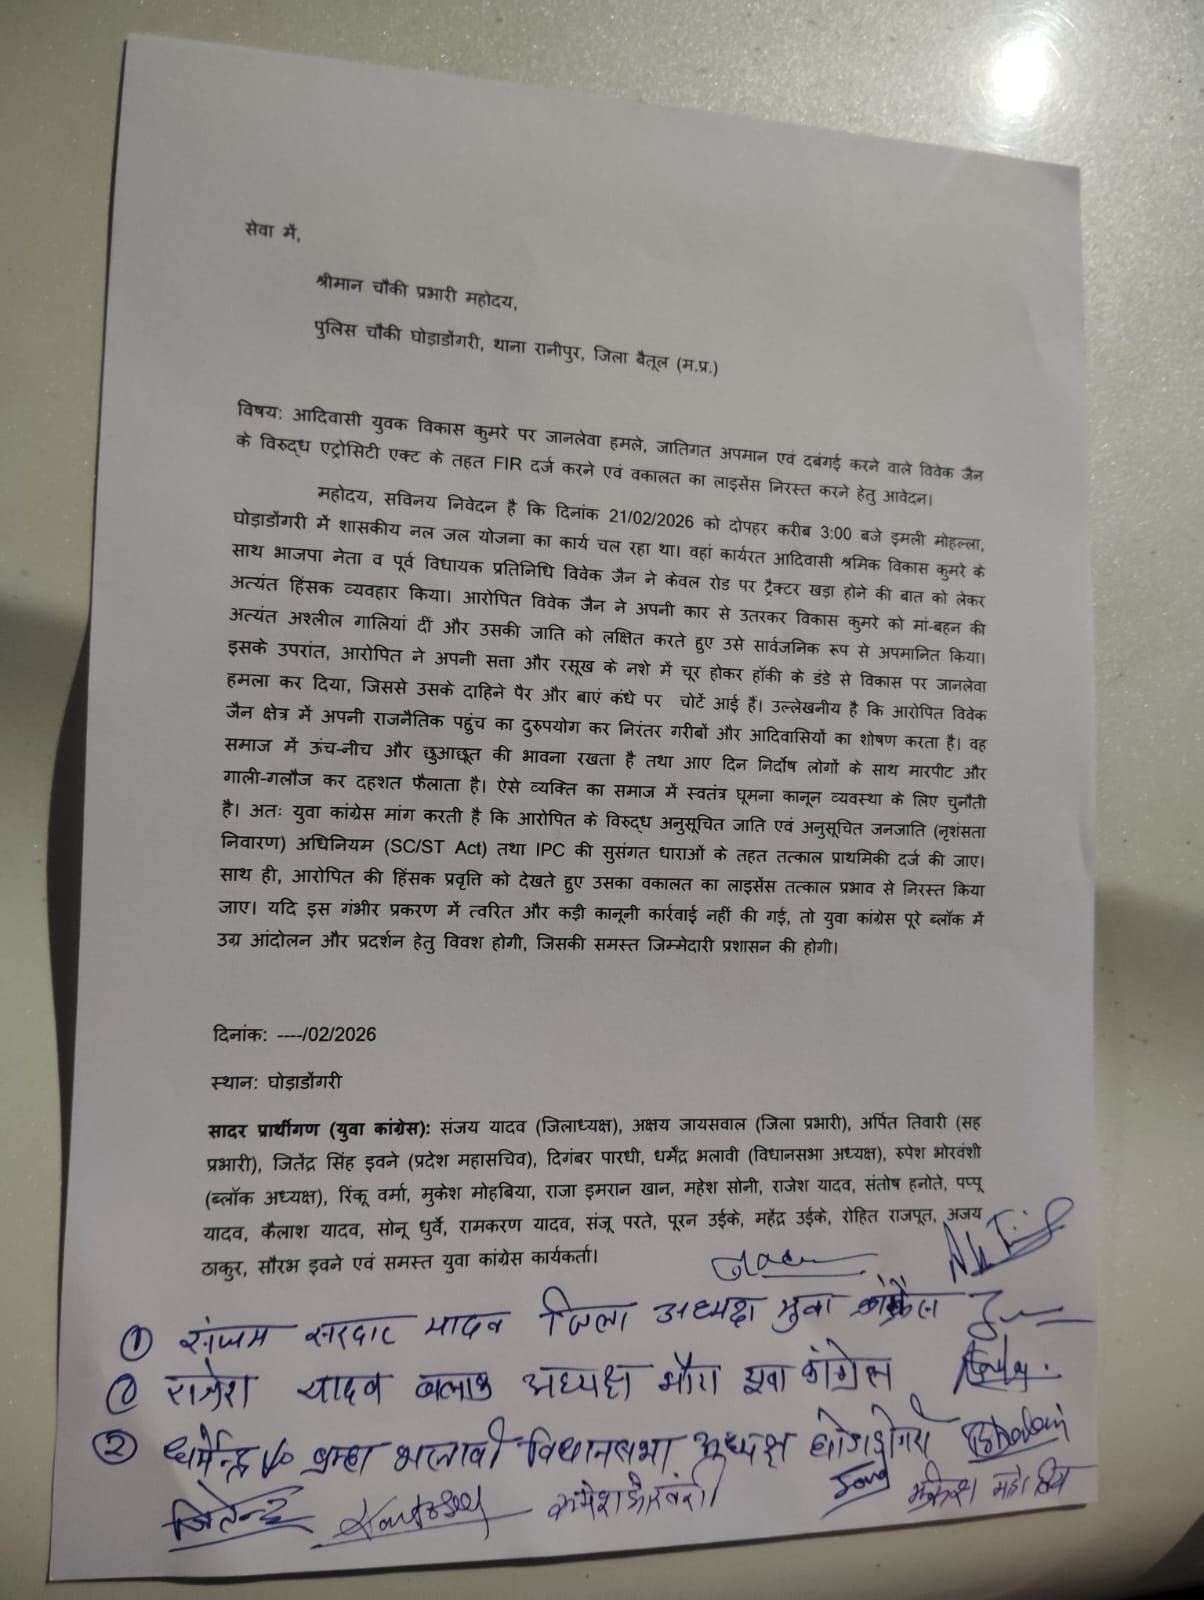 सेवा में,
श्रीमान चौकी प्रभारी महोदय,
पुलिस चौकी घोड़ाडोंगरी, थाना रानीपुर, जिला बैतूल (म.प्र.)
विषय: आदिवासी युवक विकास कुमरे पर जानलेवा हमले, जातिगत अपमान एवं दबंगई करने वाले विवेक जैन
के विरुद्ध एट्रोसिटी एक्ट के तहत FIR दर्ज करने एवं वकालत का लाइसेंस निरस्त करने हेतु आवेदन।
महोदय, सविनय निवेदन है कि दिनांक 21/02/2026 को दोपहर करीब 3:00 बजे इमली मोहल्ला,
घोड़ाडोंगरी में शासकीय नल जल योजना का कार्य चल रहा था। वहां कार्यरत आदिवासी श्रमिक विकास कुमरे के
साथ भाजपा नेता व पूर्व विधायक प्रतिनिधि विवेक जैन ने केवल रोड पर ट्रैक्टर खड़ा होने की बात को लेकर
अत्यंत हिंसक व्यवहार किया। आरोपित विवेक जैन ने अपनी कार से उतरकर विकास कुमरे को मां-बहन की
अत्यंत अश्लील गालियां दीं और उसकी जाति को लक्षित करते हुए उसे सार्वजनिक रूप से अपमानित किया।
इसके उपरांत, आरोपित ने अपनी सत्ता और रसूख के नशे में चूर होकर हॉकी के डंडे से विकास पर जानलेवा
हमला कर दिया, जिससे उसके दाहिने पैर और बाएं कंधे पर चोटें आई हैं। उल्लेखनीय है कि आरोपित विवेक
जैन क्षेत्र में अपनी राजनैतिक पहुंच का दुरुपयोग कर निरंतर गरीबों और आदिवासियों का शोषण करता है। वह
समाज में ऊंच-नीच और छुआछूत की भावना रखता है तथा आए दिन निर्दोष लोगों के साथ मारपीट और
गाली-गलौज कर दहशत फैलाता है। ऐसे व्यक्ति का समाज में स्वतंत्र घूमना कानून व्यवस्था के लिए चुनौती
है। अतः युवा कांग्रेस मांग करती है कि आरोपित के विरुद्ध अनुसूचित जाति एवं अनुसूचित जनजाति (नृशंसता
निवारण) अधिनियम (SC/ST Act) तथा IPC की सुसंगत धाराओं के तहत तत्काल प्राथमिकी दर्ज की जाए।
साथ ही, आरोपित की हिंसक प्रवृत्ति को देखते हुए उसका वकालत का लाइसेंस तत्काल प्रभाव से निरस्त किया
जाए। यदि इस गंभीर प्रकरण में त्वरित और कड़ी कानूनी कार्रवाई नहीं की गई, तो युवा कांग्रेस पूरे ब्लॉक में
उग्र आंदोलन और प्रदर्शन हेतु विवश होगी, जिसकी समस्त जिम्मेदारी प्रशासन की होगी।
दिनांक: ----/02/2026
स्थान: घोड़ाडोंगरी
सादर प्रार्थीगण (युवा कांग्रेस): संजय यादव (जिलाध्यक्ष), अक्षय जायसवाल (जिला प्रभारी), अर्पित तिवारी (सह
प्रभारी), जितेंद्र सिंह इवने (प्रदेश महासचिव), दिगंबर पारधी, धर्मेंद्र भलावी (विधानसभा अध्यक्ष), रुपेश भोरवंशी
(ब्लॉक अध्यक्ष), रिंकू वर्मा, मुकेश मोहबिया, राजा इमरान खान, महेश सोनी, राजेश यादव, संतोष हनोते, पप्पू
यादव, कैलाश यादव, सोनू धुर्वे, रामकरण यादव, संजू परते, पूरन उईके, महेंद्र उईके, रोहित राजपूत, अजय
ठाकुर, सौरभ इवने एवं समस्त युवा कांग्रेस कार्यकर्ता।
① संजय सरदार यादव जिला अध्यक्ष युवा कांग्रेस
② राजेश यादव ब्लाक अध्यक्ष भौरा युवा कांग्रेस
② धर्मेन्द्र भलावी विधानसभा अध्यक्ष
जितेन्द्र